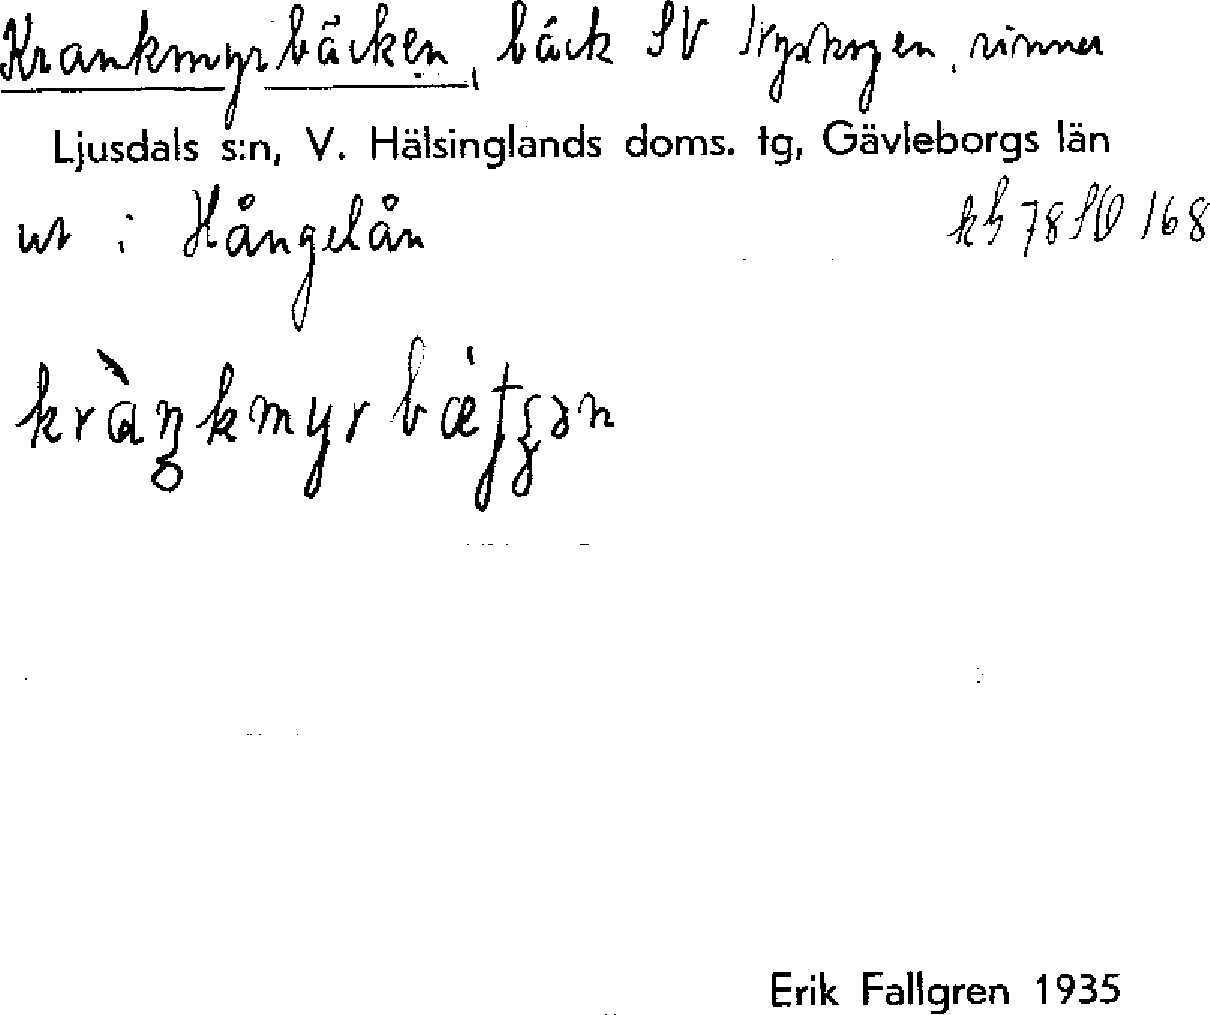 Krankmyrbäcken, bäck SV Nyskogen, rinner
Ljusdals s:n, V. Hälsinglands doms. tg, Gävleborgs län
ut i Hångelån kb 78 SO 168
kràŋkmyrbætʂən
Erik Fallgren 1935